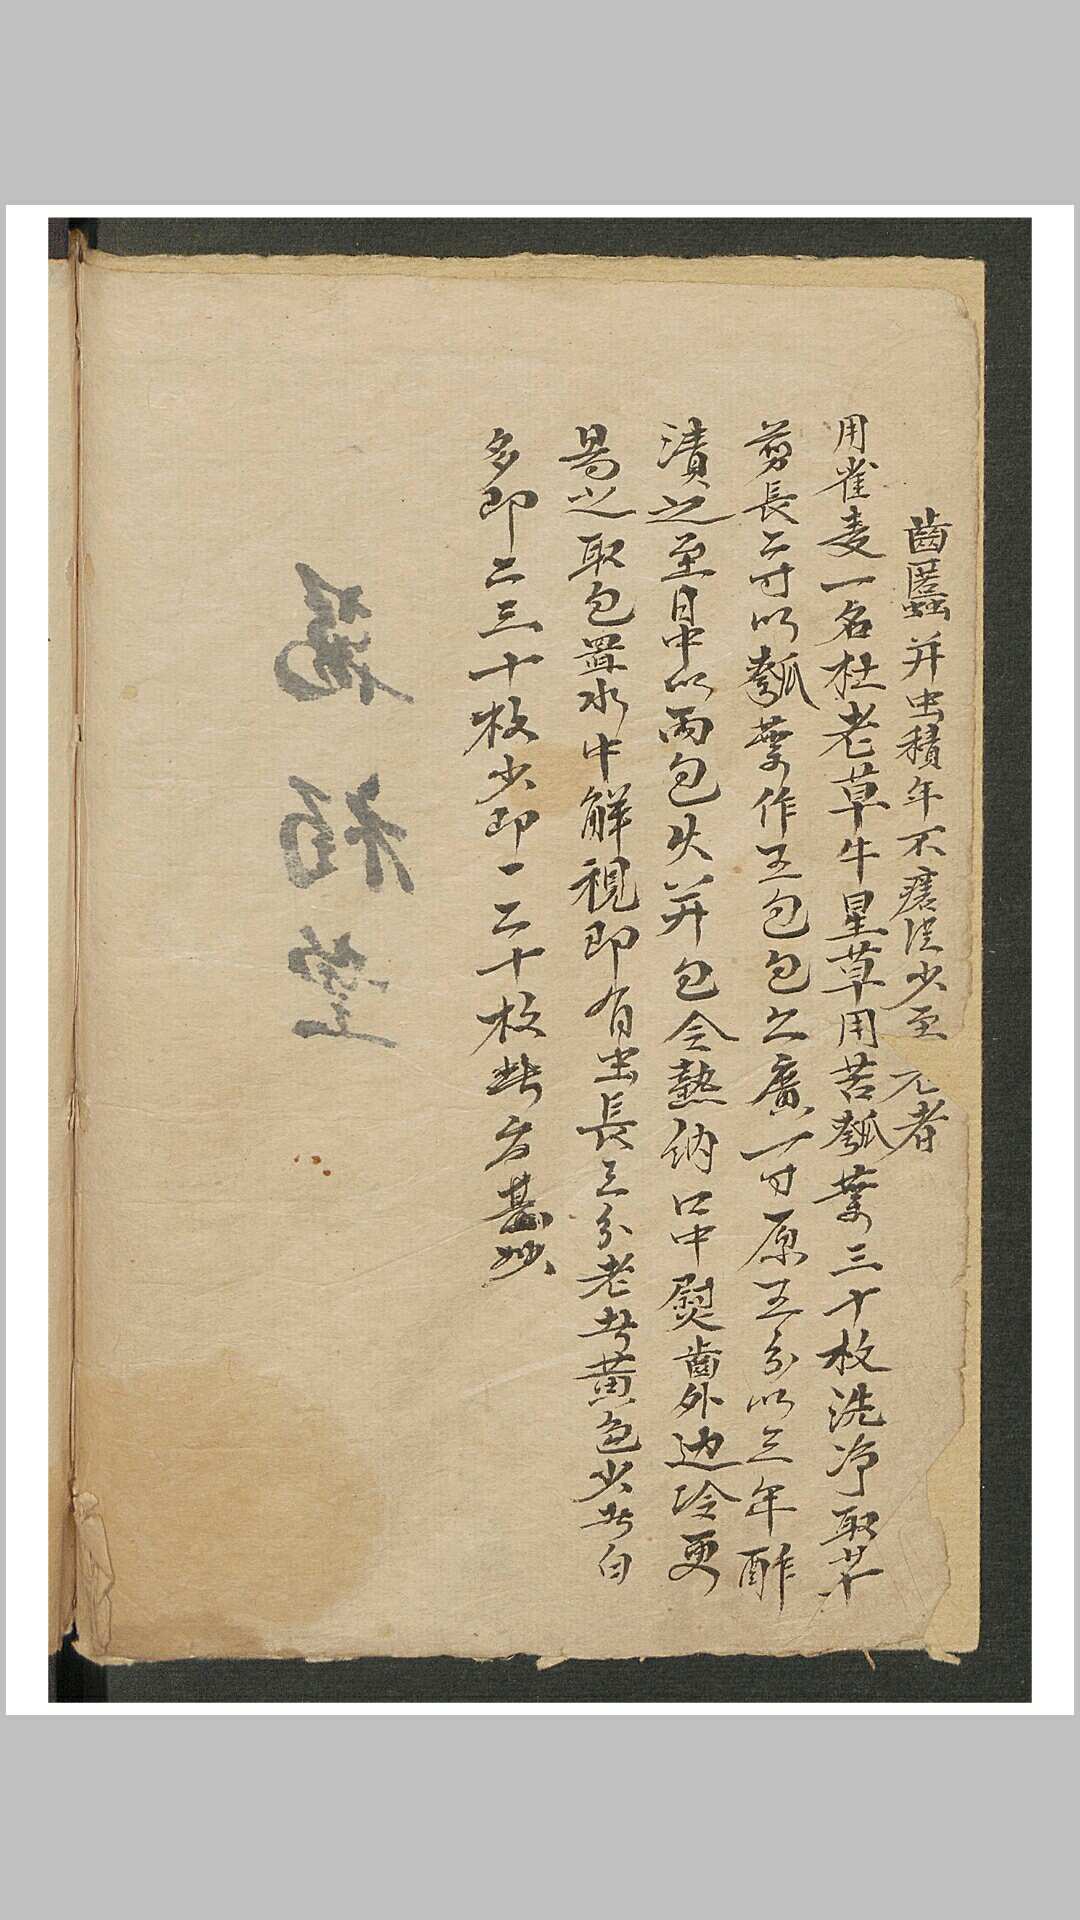 齒䘌并虫積年不瘥從少至 元者
用雀麦一名杜老草牛星草用苦瓠葉三十枚洗净取草
剪長二寸以瓠葉作五包包之廣一寸原五分以三年酢
漬之至日中以兩包火并包令熱納口中熨齒外边冷更
易之取包置水中解視即有虫長三分老者黄色少者白
多即二三十枚少即一二十枚此方甚妙